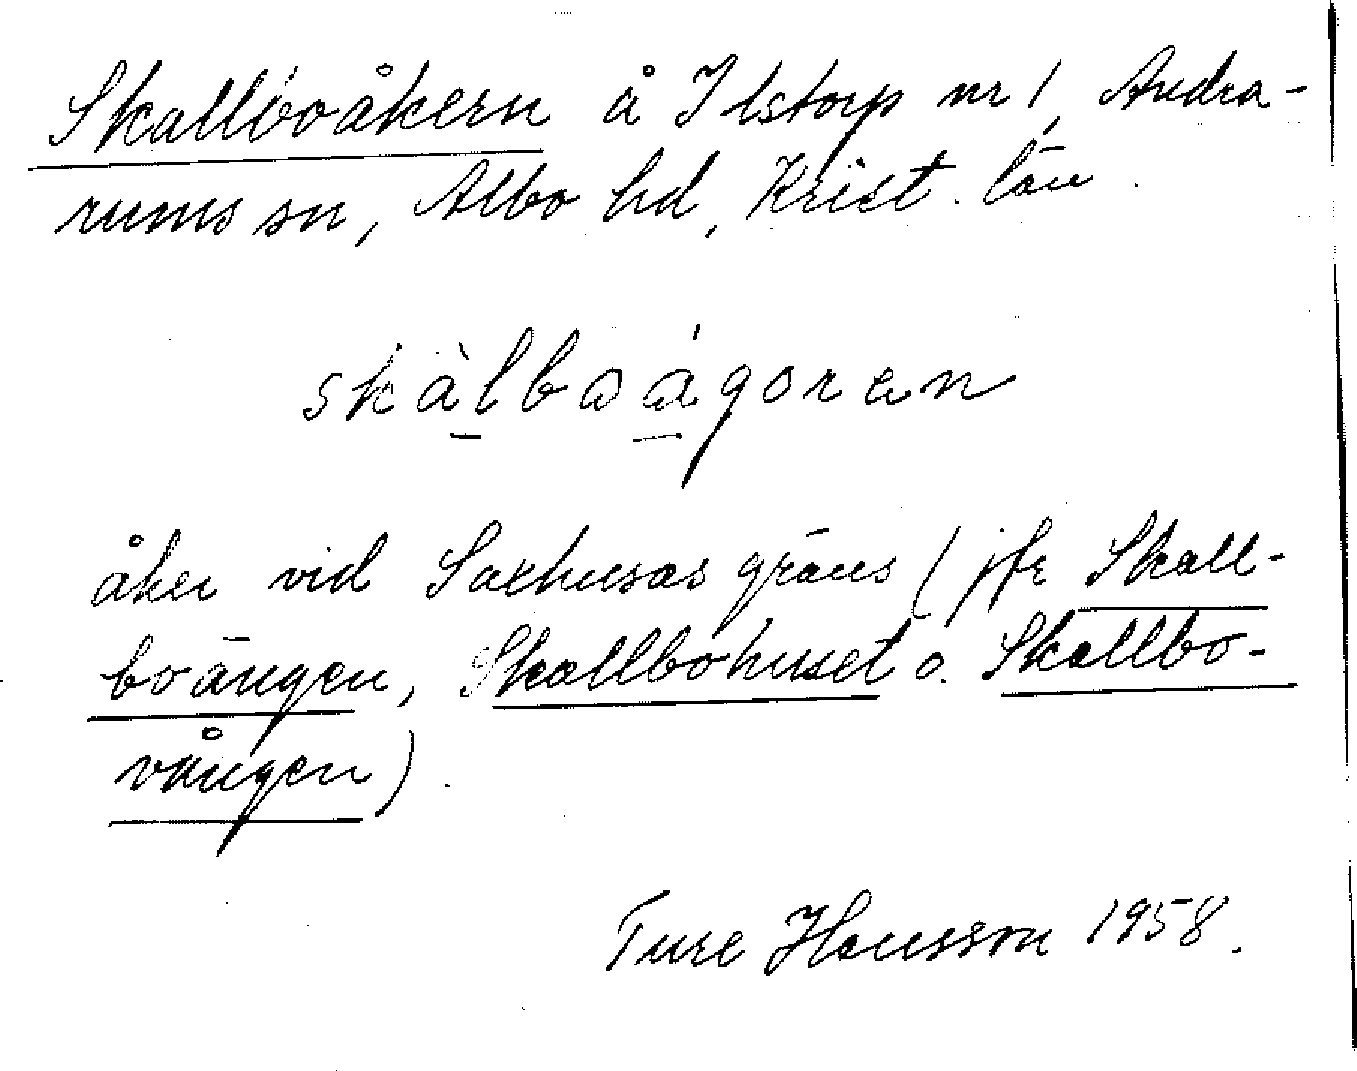 Skallboåkern å Ilstorp nr 1, Andra-
rums sn, Albo hd, Krist. län.
skàlboágoren
åker vid Saxhusas gräns (jfr Skall-
boängen, Skallbohuset o. Skallbo-
vången).
Ture Hansson 1958.